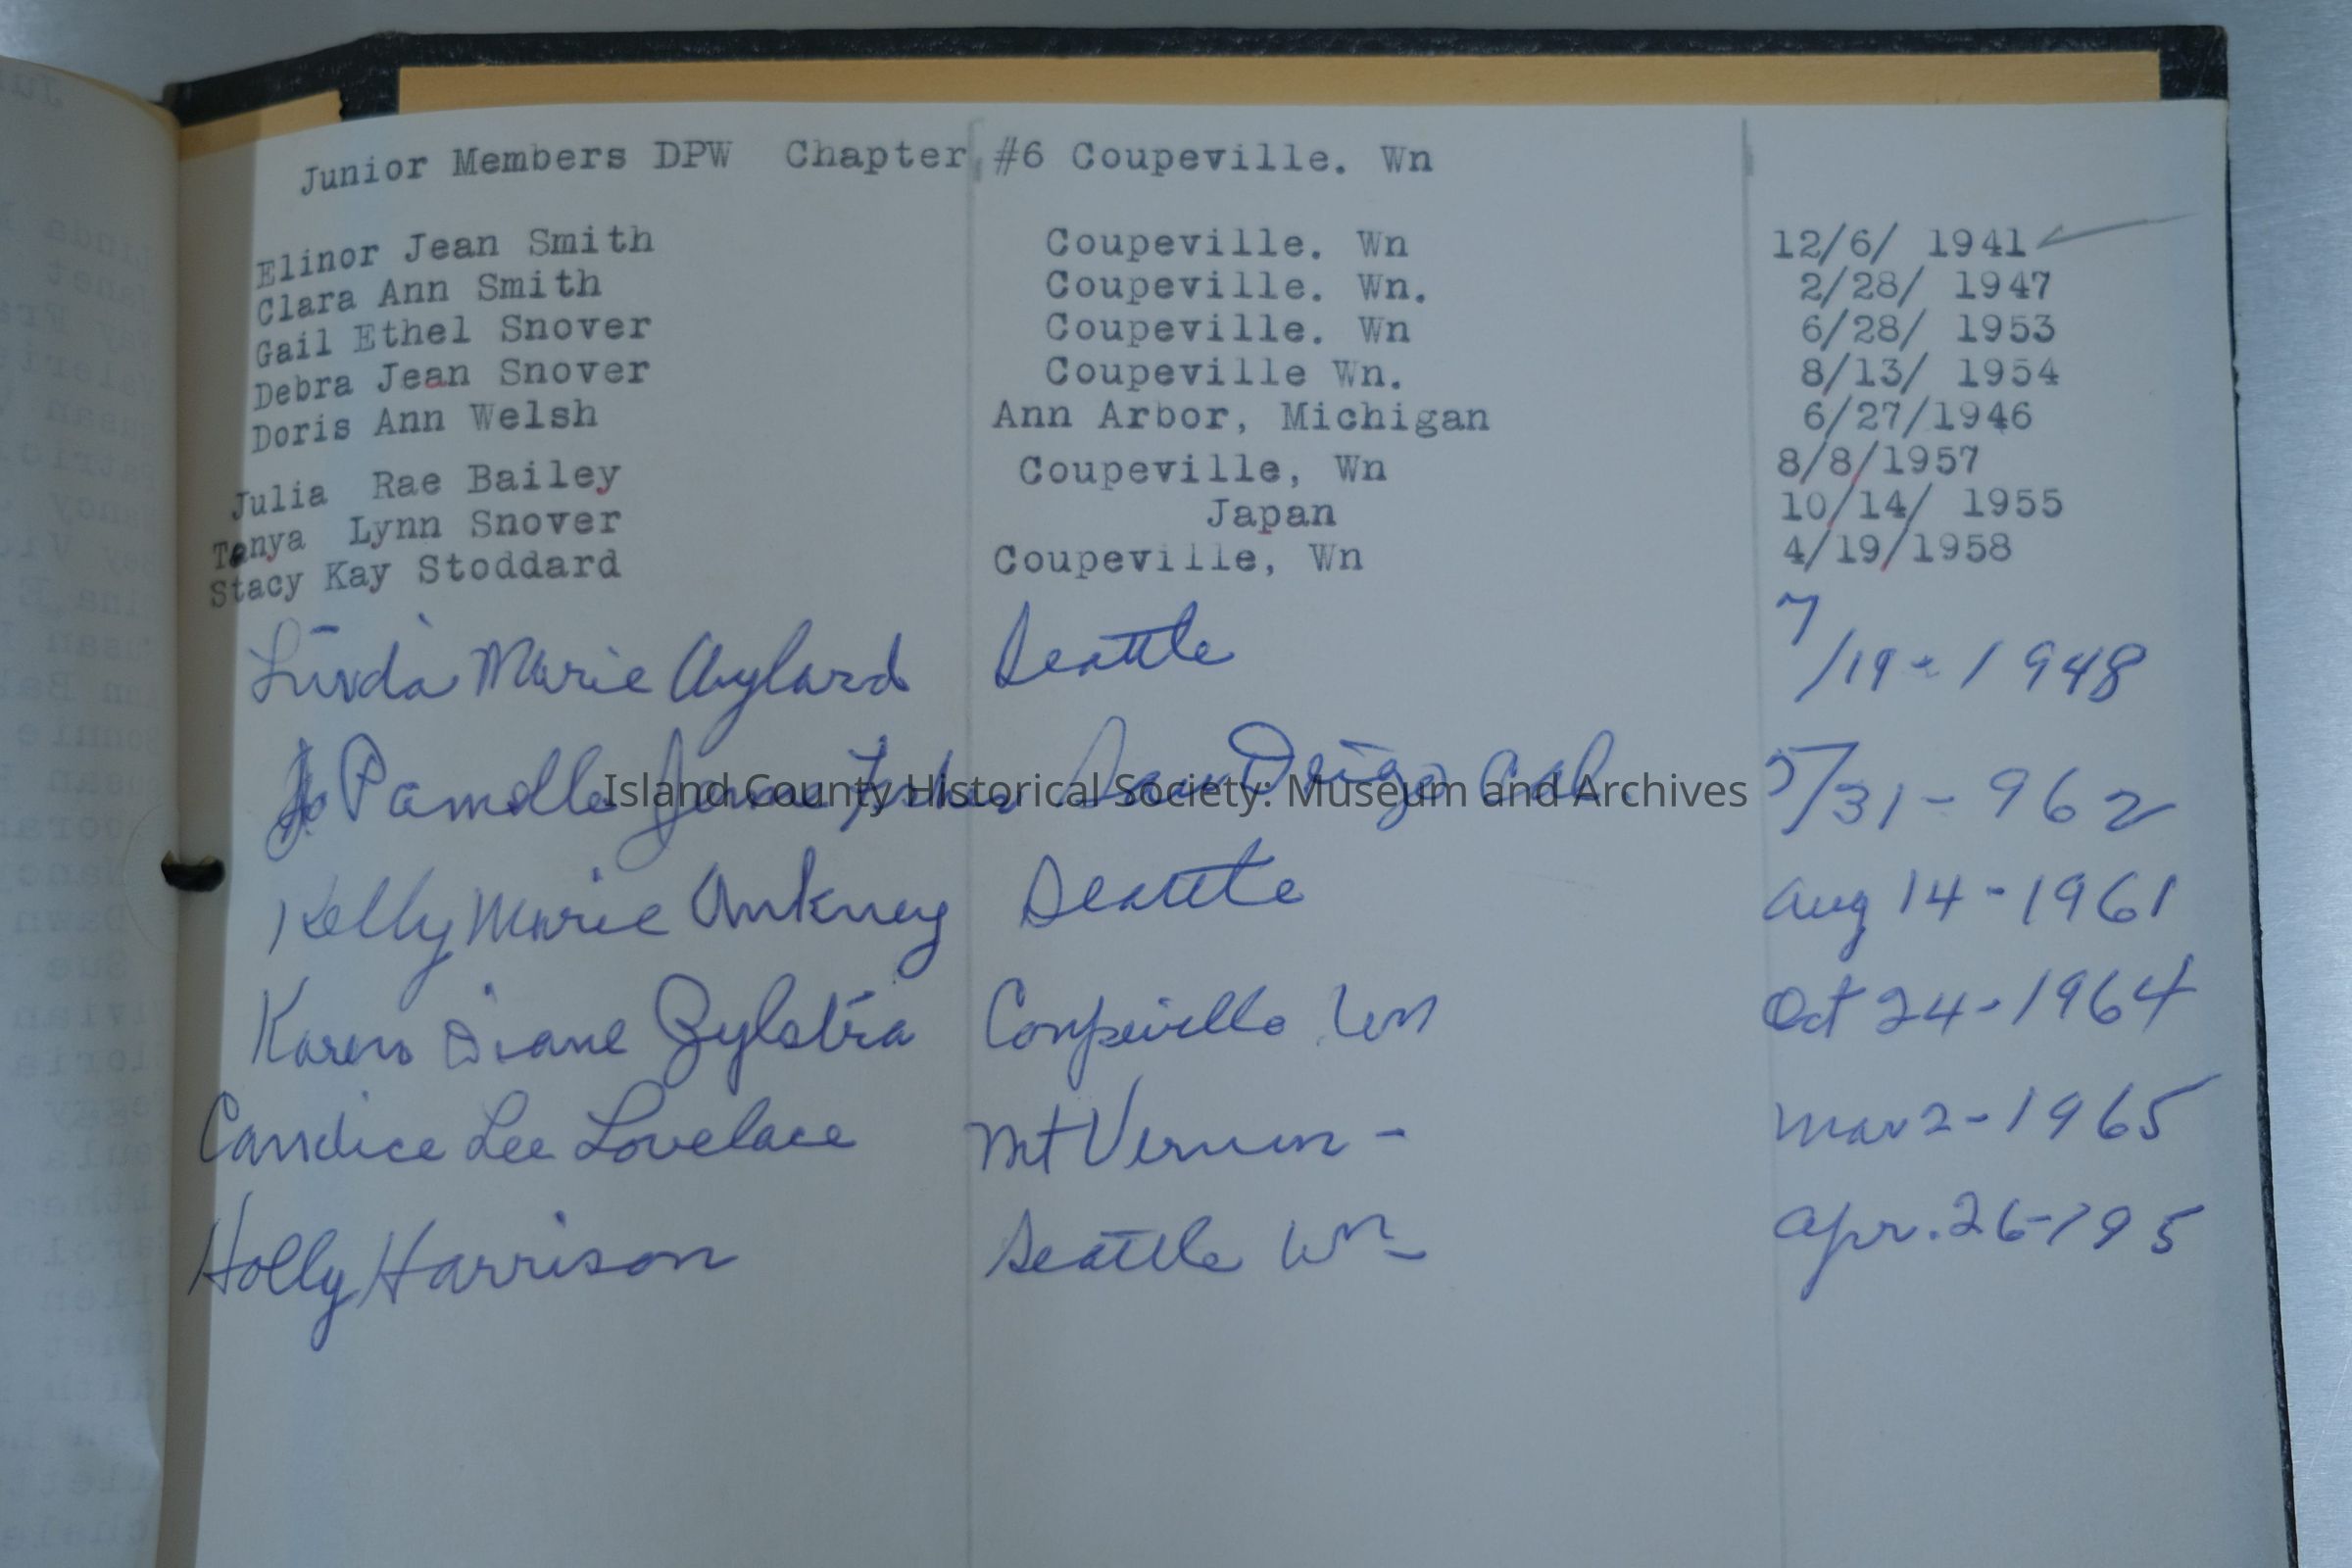 Junior Members DPW Chapter #6 Coupeville. Wn
Elinor Jean Smith Coupeville. Wn 12/6/ 1941
Clara Ann Smith Coupeville. Wn. 2/28/ 1947
Gail Ethel Snover Coupeville. Wn 6/28/ 1953
Debra Jean Snover Coupeville Wn. 8/13/ 1954
Doris Ann Welsh Ann Arbor, Michigan 6/27/1946
Julia Rae Bailey Coupeville, Wn 8/8/1957
Tanya Lynn Snover Japan 10/14/ 1955
Stacy Kay Stoddard Coupeville, Wn 4/19/1958
Linda Marie Aylard Seattle 7/19-1948
Pamella Jane San Deigo Cal. 5/31-962
Island County Historical Society: Museum and Archives
Kelly Marie Ankney Seattle Aug 14-1961
Karen Diane Zylstra Coupeville Wn Oct 24-1964
Candice Lee Lovelace Mt Vernon - Mar 2-1965
Holly Harrison Seattle Wn Apr. 26-195